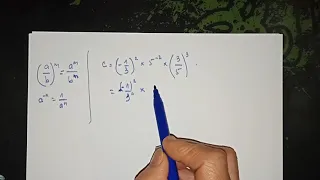 (a/b)^m = a^m/b^m
a^-n = 1/a^n
C = (-1/3)^2 × 5^-2 × (3/5)^3
= (-1)^2/3^2 ×